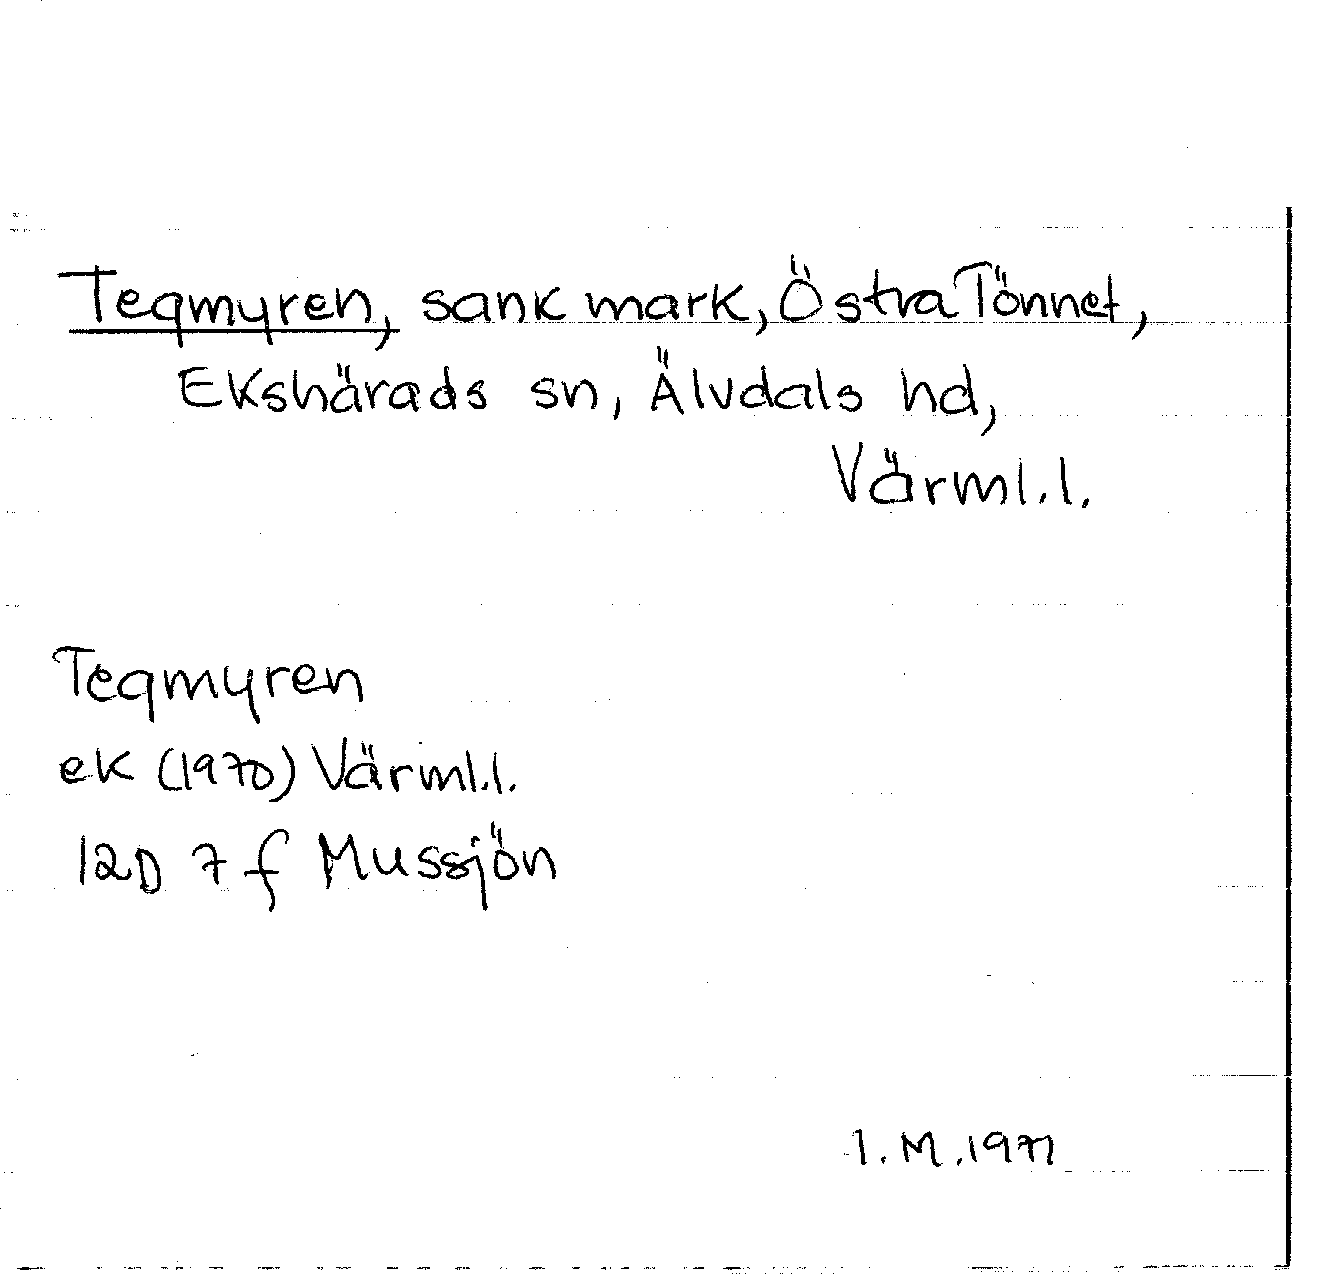 Tegmyren, sank mark, Östra Tönnet,
Ekshärads sn, Älvdals hd,
Värml.l.
Tegmyren
ek (1970) Värml.l.
12D 7f Mussjön
I.M.1977